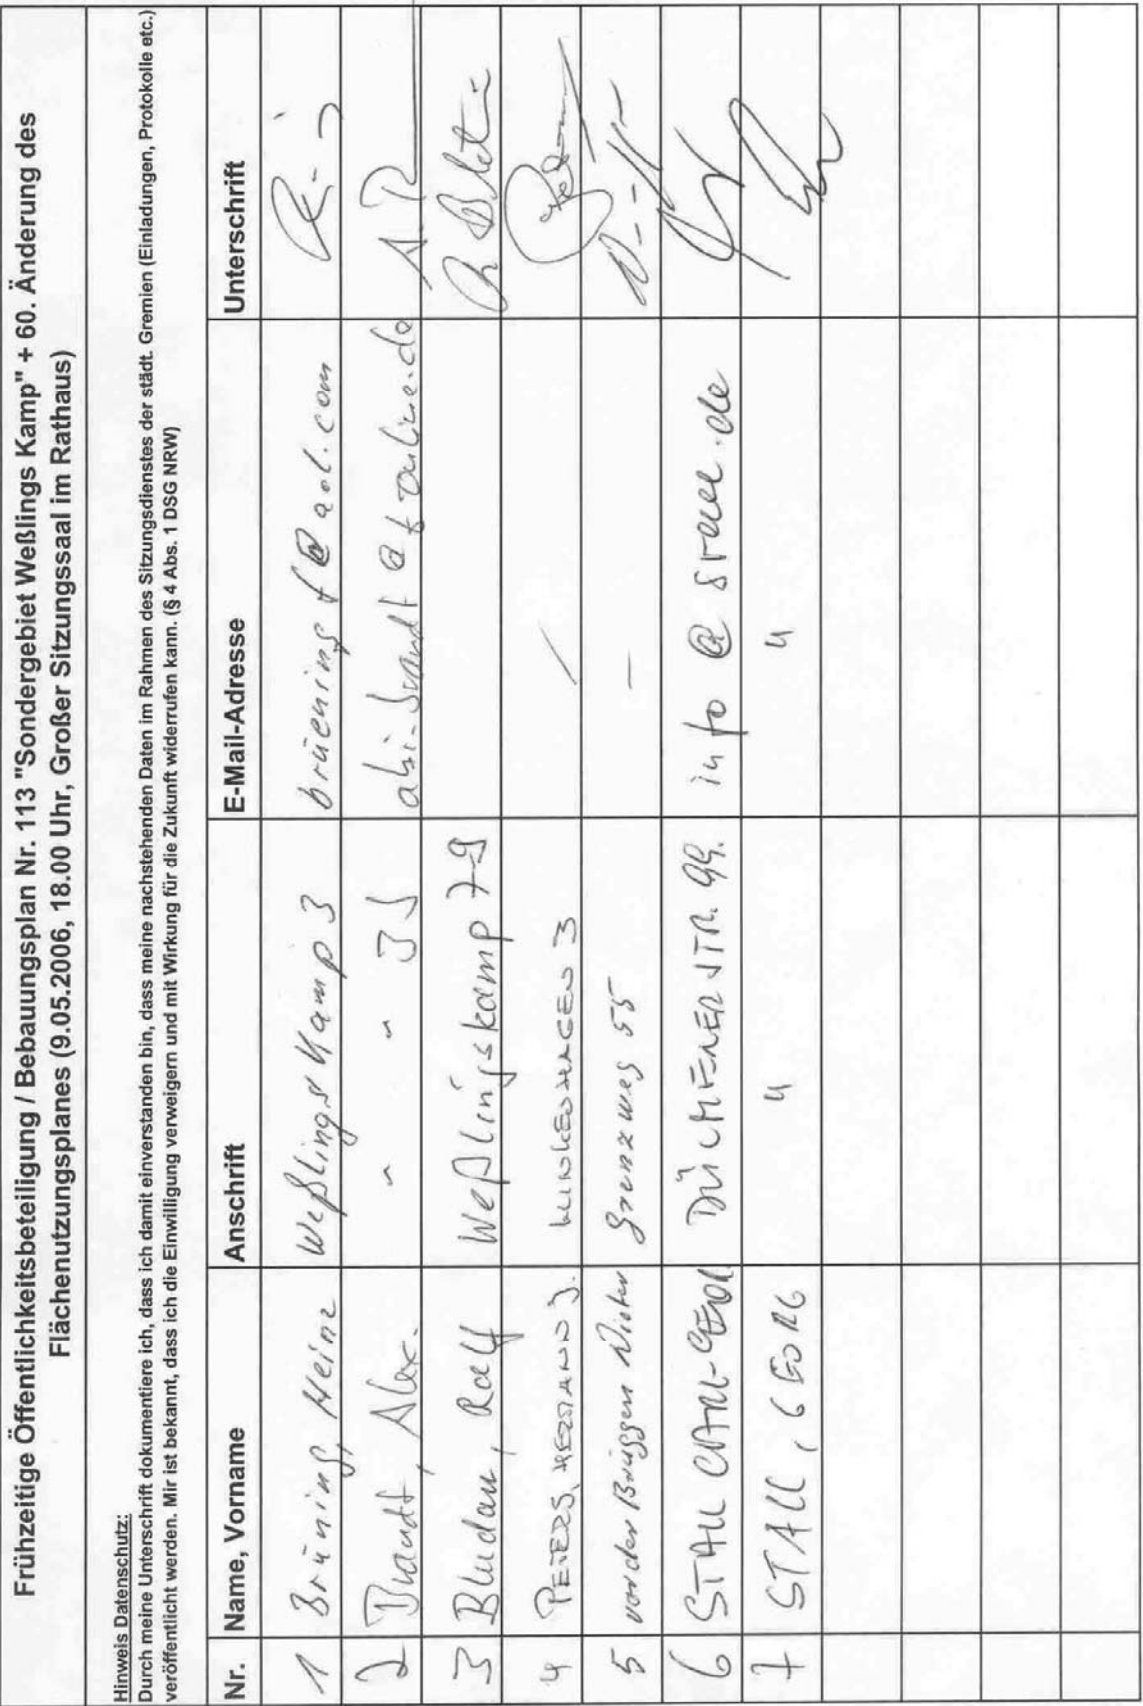 Frühzeitige Öffentlichkeitsbeteiligung / Bebauungsplan Nr. 113 "Sondergebiet Weßlings Kamp" + 60. Änderung des
Flächenutzungsplanes (9.05.2006, 18.00 Uhr, Großer Sitzungssaal im Rathaus)
Hinweis Datenschutz:
Durch meine Unterschrift dokumentiere ich, dass ich damit einverstanden bin, dass meine nachstehenden Daten im Rahmen des Sitzungsdienstes der städt. Gremien (Einladungen, Protokolle etc.)
veröffentlicht werden. Mir ist bekannt, dass ich die Einwilligung verweigern und mit Wirkung für die Zukunft widerrufen kann. (§ 4 Abs. 1 DSG NRW)
Nr. Name, Vorname Anschrift E-Mail-Adresse Unterschrift
1 Brüning, Heinz Weßlings Kamp 3 bruening f@aol.com
2 Brandt, Alex. " " 35
3 Bludau, Ralf Weßlingskamp 7-9
4 PETERS, HERMANN J. 3 /
5 von der Brüggen Dieter Grenzweg 55 –
6 STALL CARL-GEORG DÜLMENER STR. 99. info@stall.de
7 STALL, GEORG " "